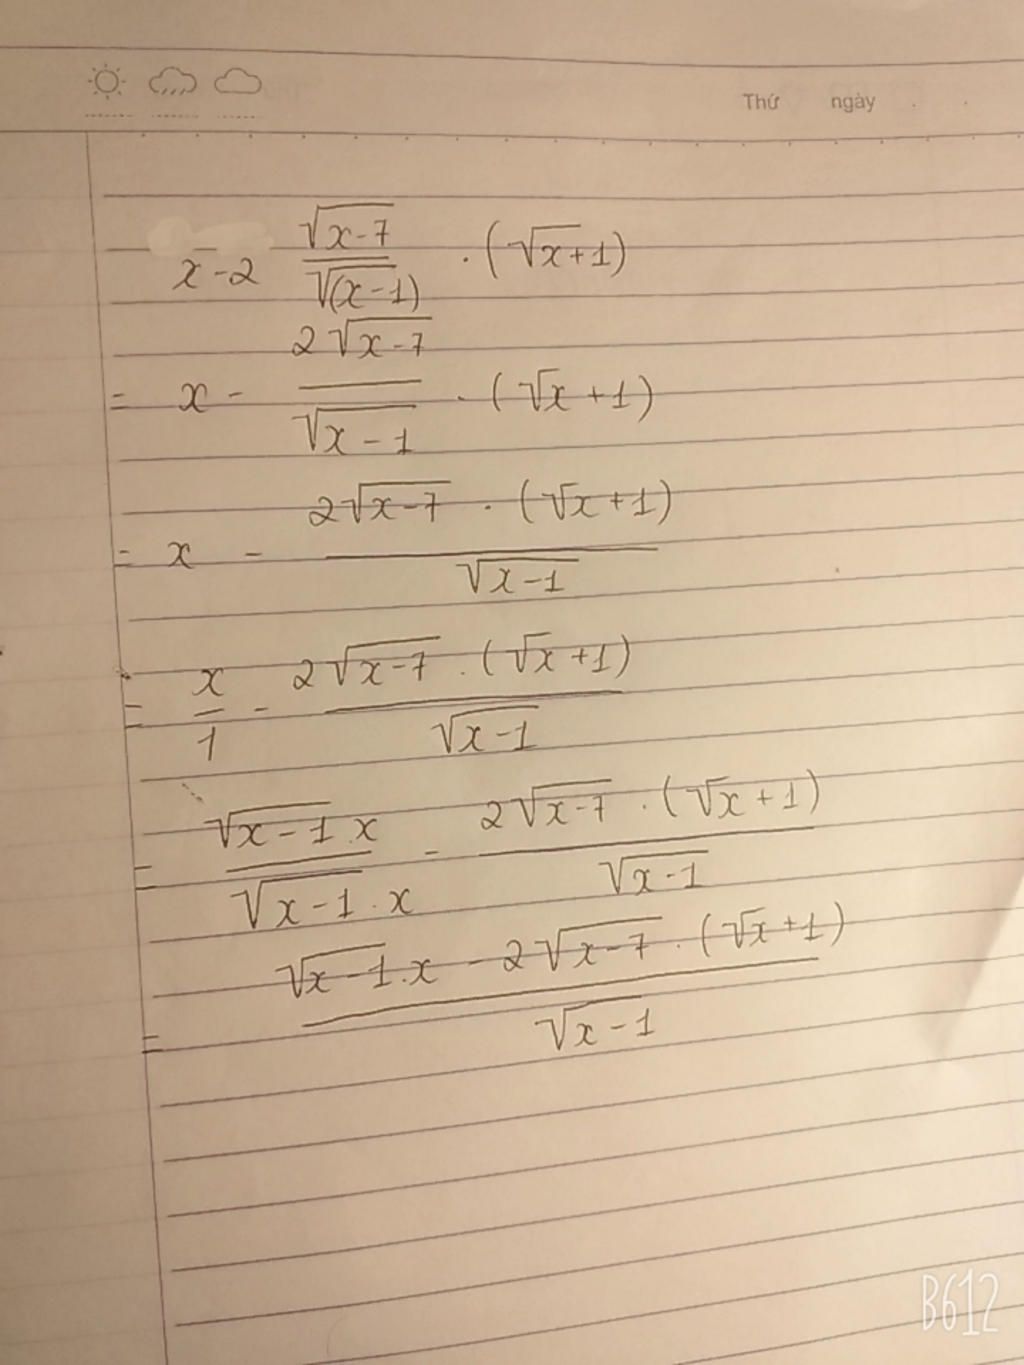 Thứ ngày
x-2 √(x-7)/√(x-1) . (√x+1)
= x - 2√(x-7)/√(x-1) . (√x+1)
= x - 2√(x-7) . (√x+1)/√(x-1)
= x/1 - 2√(x-7) . (√x+1)/√(x-1)
= √(x-1) . x/√(x-1) . x - 2√(x-7) . (√x+1)/√(x-1)
= √(x-1) . x - 2√(x-7) . (√x+1)/√(x-1)
B612